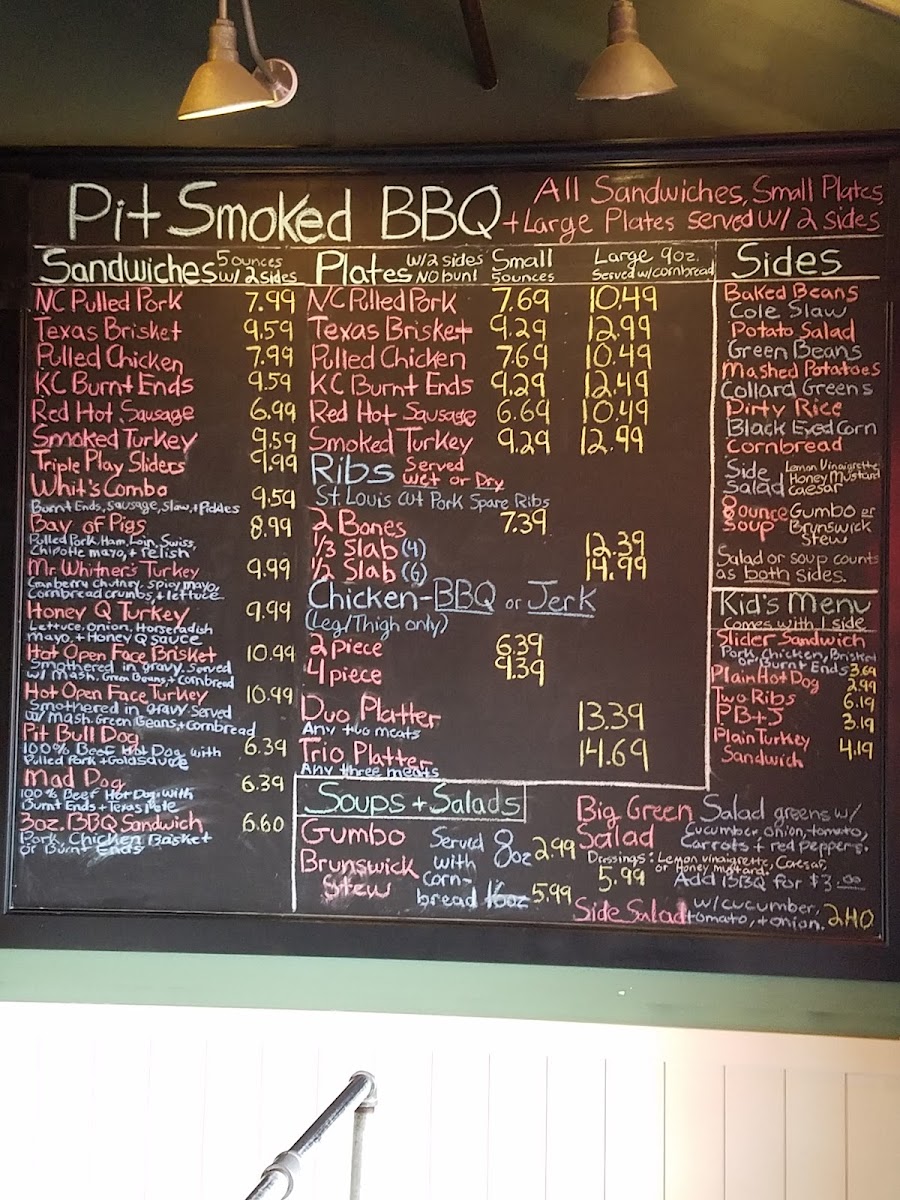 Pit Smoked BBQ
All Sandwiches, Small Plates,
+ Large Plates served w/ 2 sides
Sandwiches 5 ounces w/ 2 sides
NC Pulled Pork 7.99
Texas Brisket 9.59
Pulled Chicken 7.99
KC Burnt Ends 9.59
Red Hot Sausage 6.99
Smoked Turkey 9.59
Triple Play Sliders 9.99
Whit's Combo 9.59
Burnt Ends, Sausage, Slaw, + Pickles
Bay of Pigs 8.99
Pulled Pork, Ham, Loin, Swiss,
Chipotle mayo, + relish
Mr. Whitner's Turkey 9.99
Cranberry chutney, spicy mayo,
Cornbread crumbs, + lettuce
Honey Q Turkey 9.99
Lettuce, onion, Horseradish
mayo, + Honey Q sauce
Hot Open Face Brisket 10.99
Smothered in gravy. Served
w/ Mash. Green Beans, + Cornbread
Hot Open Face Turkey 10.99
Smothered in gravy. Served
w/ mash. Green Beans, + Cornbread
Pit Bull Dog 6.39
100% Beef Hot Dog with
Pulled Pork + Gold sauce
Mad Dog 6.39
100% Beef Hot Dog with
Burnt Ends + Texas Pete
3oz. BBQ Sandwich 6.60
Pork, Chicken, Basket
or Burnt Ends
Plates w/ 2 sides NO bun! Small 5 ounces Large 9oz. Served w/ cornbread
NC Pulled Pork 7.69 10.49
Texas Brisket 9.29 12.99
Pulled Chicken 7.69 10.49
KC Burnt Ends 9.29 12.49
Red Hot Sausage 6.69 10.49
Smoked Turkey 9.29 12.99
Ribs Served Wet or Dry
St. Louis Cut Pork Spare Ribs
2 Bones 7.39
1/3 Slab (4) 12.39
1/2 Slab (6) 14.99
Chicken - BBQ or Jerk
(Leg/Thigh only)
2 piece 6.39
4 piece 9.39
Duo Platter 13.39
Any two meats
Trio Platter 14.69
Any three meats
Soups + Salads
Gumbo
Brunswick
Stew
Served with Corn-bread
8oz 2.99
16oz 5.99
Big Green Salad
Salad greens w/
Cucumber, onion, tomato,
Carrots + red peppers.
Dressings: Lemon vinaigrette, Caesar,
or Honey mustard.
5.99 Add BBQ for $3.00
Side Salad w/ cucumber,
tomato, + onion. 2.40
Sides
Baked Beans
Cole Slaw
Potato Salad
Green Beans
Mashed Potatoes
Collard Greens
Dirty Rice
Black Eyed Corn
Cornbread
Side Salad
Lemon Vinaigrette
Honey Mustard
Caesar
8 ounce Soup
Gumbo or
Brunswick
Stew
Salad or soup counts
as both sides.
Kid's Menu
Comes with 1 side
Slider Sandwich
Pork, Chicken, Brisket
or Burnt Ends 3.69
Plain Hot Dog 2.99
Two Ribs 6.19
PB+J 3.19
Plain Turkey
Sandwich 4.19